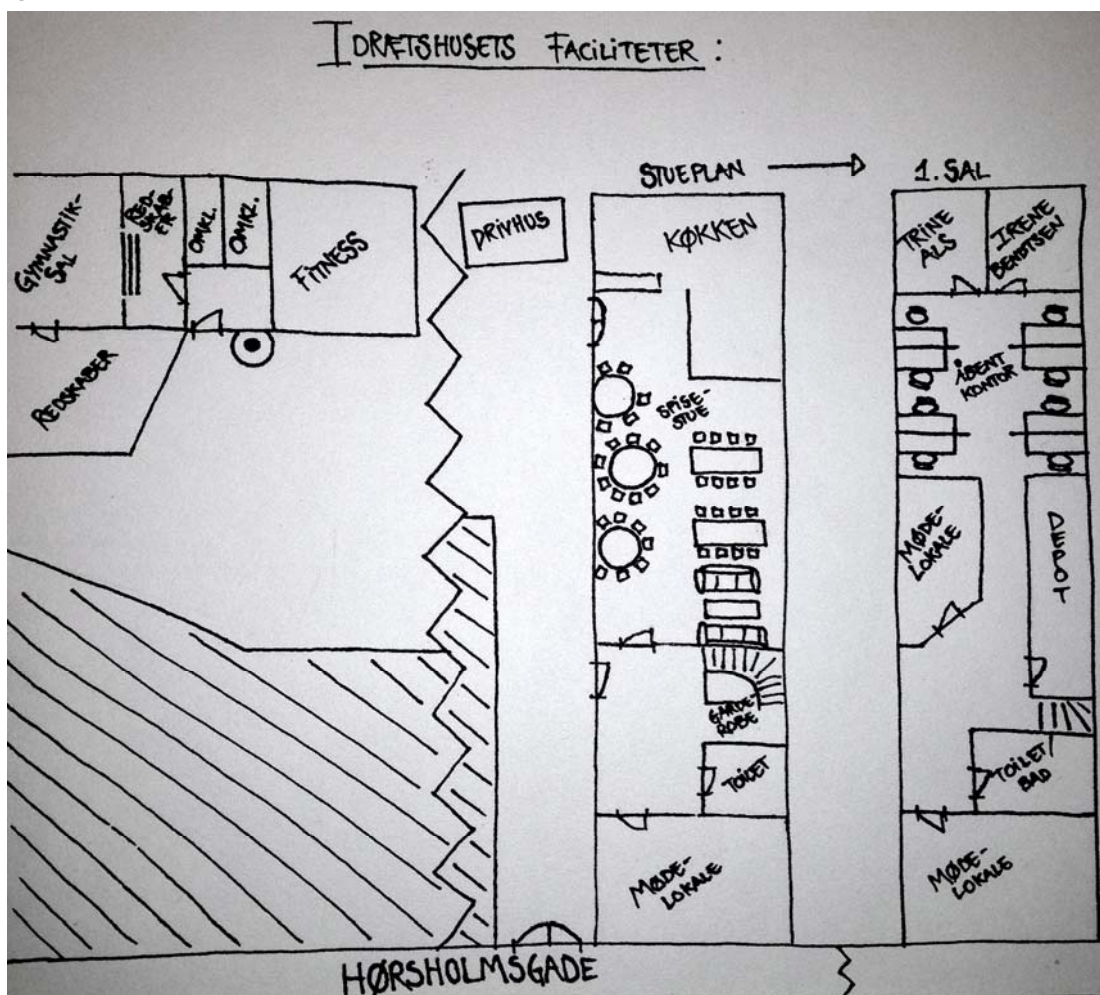 IDRÆTSHUSETS FACILITETER:
STUEPLAN
1. SAL
GYMNASTIK-
SAL
RED-
SKAB-
ER
OMKL.
OMKL.
FITNESS
REDSKABER
DRIVHUS
KØKKEN
SPISE-
STUE
GARDE-
ROBE
TOILET
MØDE-
LOKALE
TRINE
ALS
IRENE
BENDTSEN
ÅBENT
KONTOR
MØDE-
LOKALE
DEPOT
TOILET/
BAD
MØDE-
LOKALE
HØRSHOLMSGADE